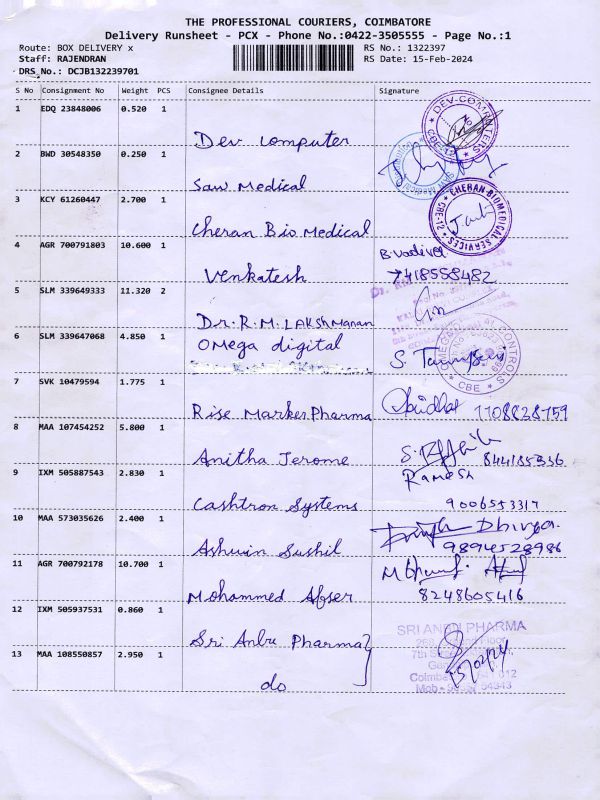 THE PROFESSIONAL COURIERS, COIMBATORE
Delivery Runsheet - PCX - Phone No.:0422-3505555 - Page No.:1
Route: BOX DELIVERY x RS No.: 1322397
Staff: RAJENDRAN RS Date: 15-Feb-2024
DRS No.: DCJB132239701
S No Consignment No Weight PCS Consignee Details Signature
1 EDQ 23848006 0.520 1
Dev computer
DEV COMPUTERS
CBE-12
2 BWD 30548350 0.250 1
Saw Medical
3 KCY 61260447 2.700 1
Cheran Bio Medical
CHERAN BIOMEDICAL SERVICES
CBE-12
4 AGR 700791803 10.600 1
Venkatesh
B. Vadivel
7418558482
5 SLM 339649333 11.320 2
Dr. R. M. LAKShManan
6 SLM 339647068 4.850 1
OMega digital
CONTROLS
CBE
7 SVK 10479594 1.775 1
Rise Marker Pharma
1108828759
8 MAA 107454252 5.800 1
Anitha Jerome
9 IXM 505887543 2.830 1
Ramesh
Cashtron Systems
10 MAA 573035626 2.400 1
Ashwin Sushil
Dhivya.
9894528986
11 AGR 700792178 10.700 1
Mohammed Afser
8248605416
12 IXM 505937531 0.860 1
Sri Anbu Pharma
SRI ANBU PHARMA
15/02/24
13 MAA 108550857 2.950 1
do